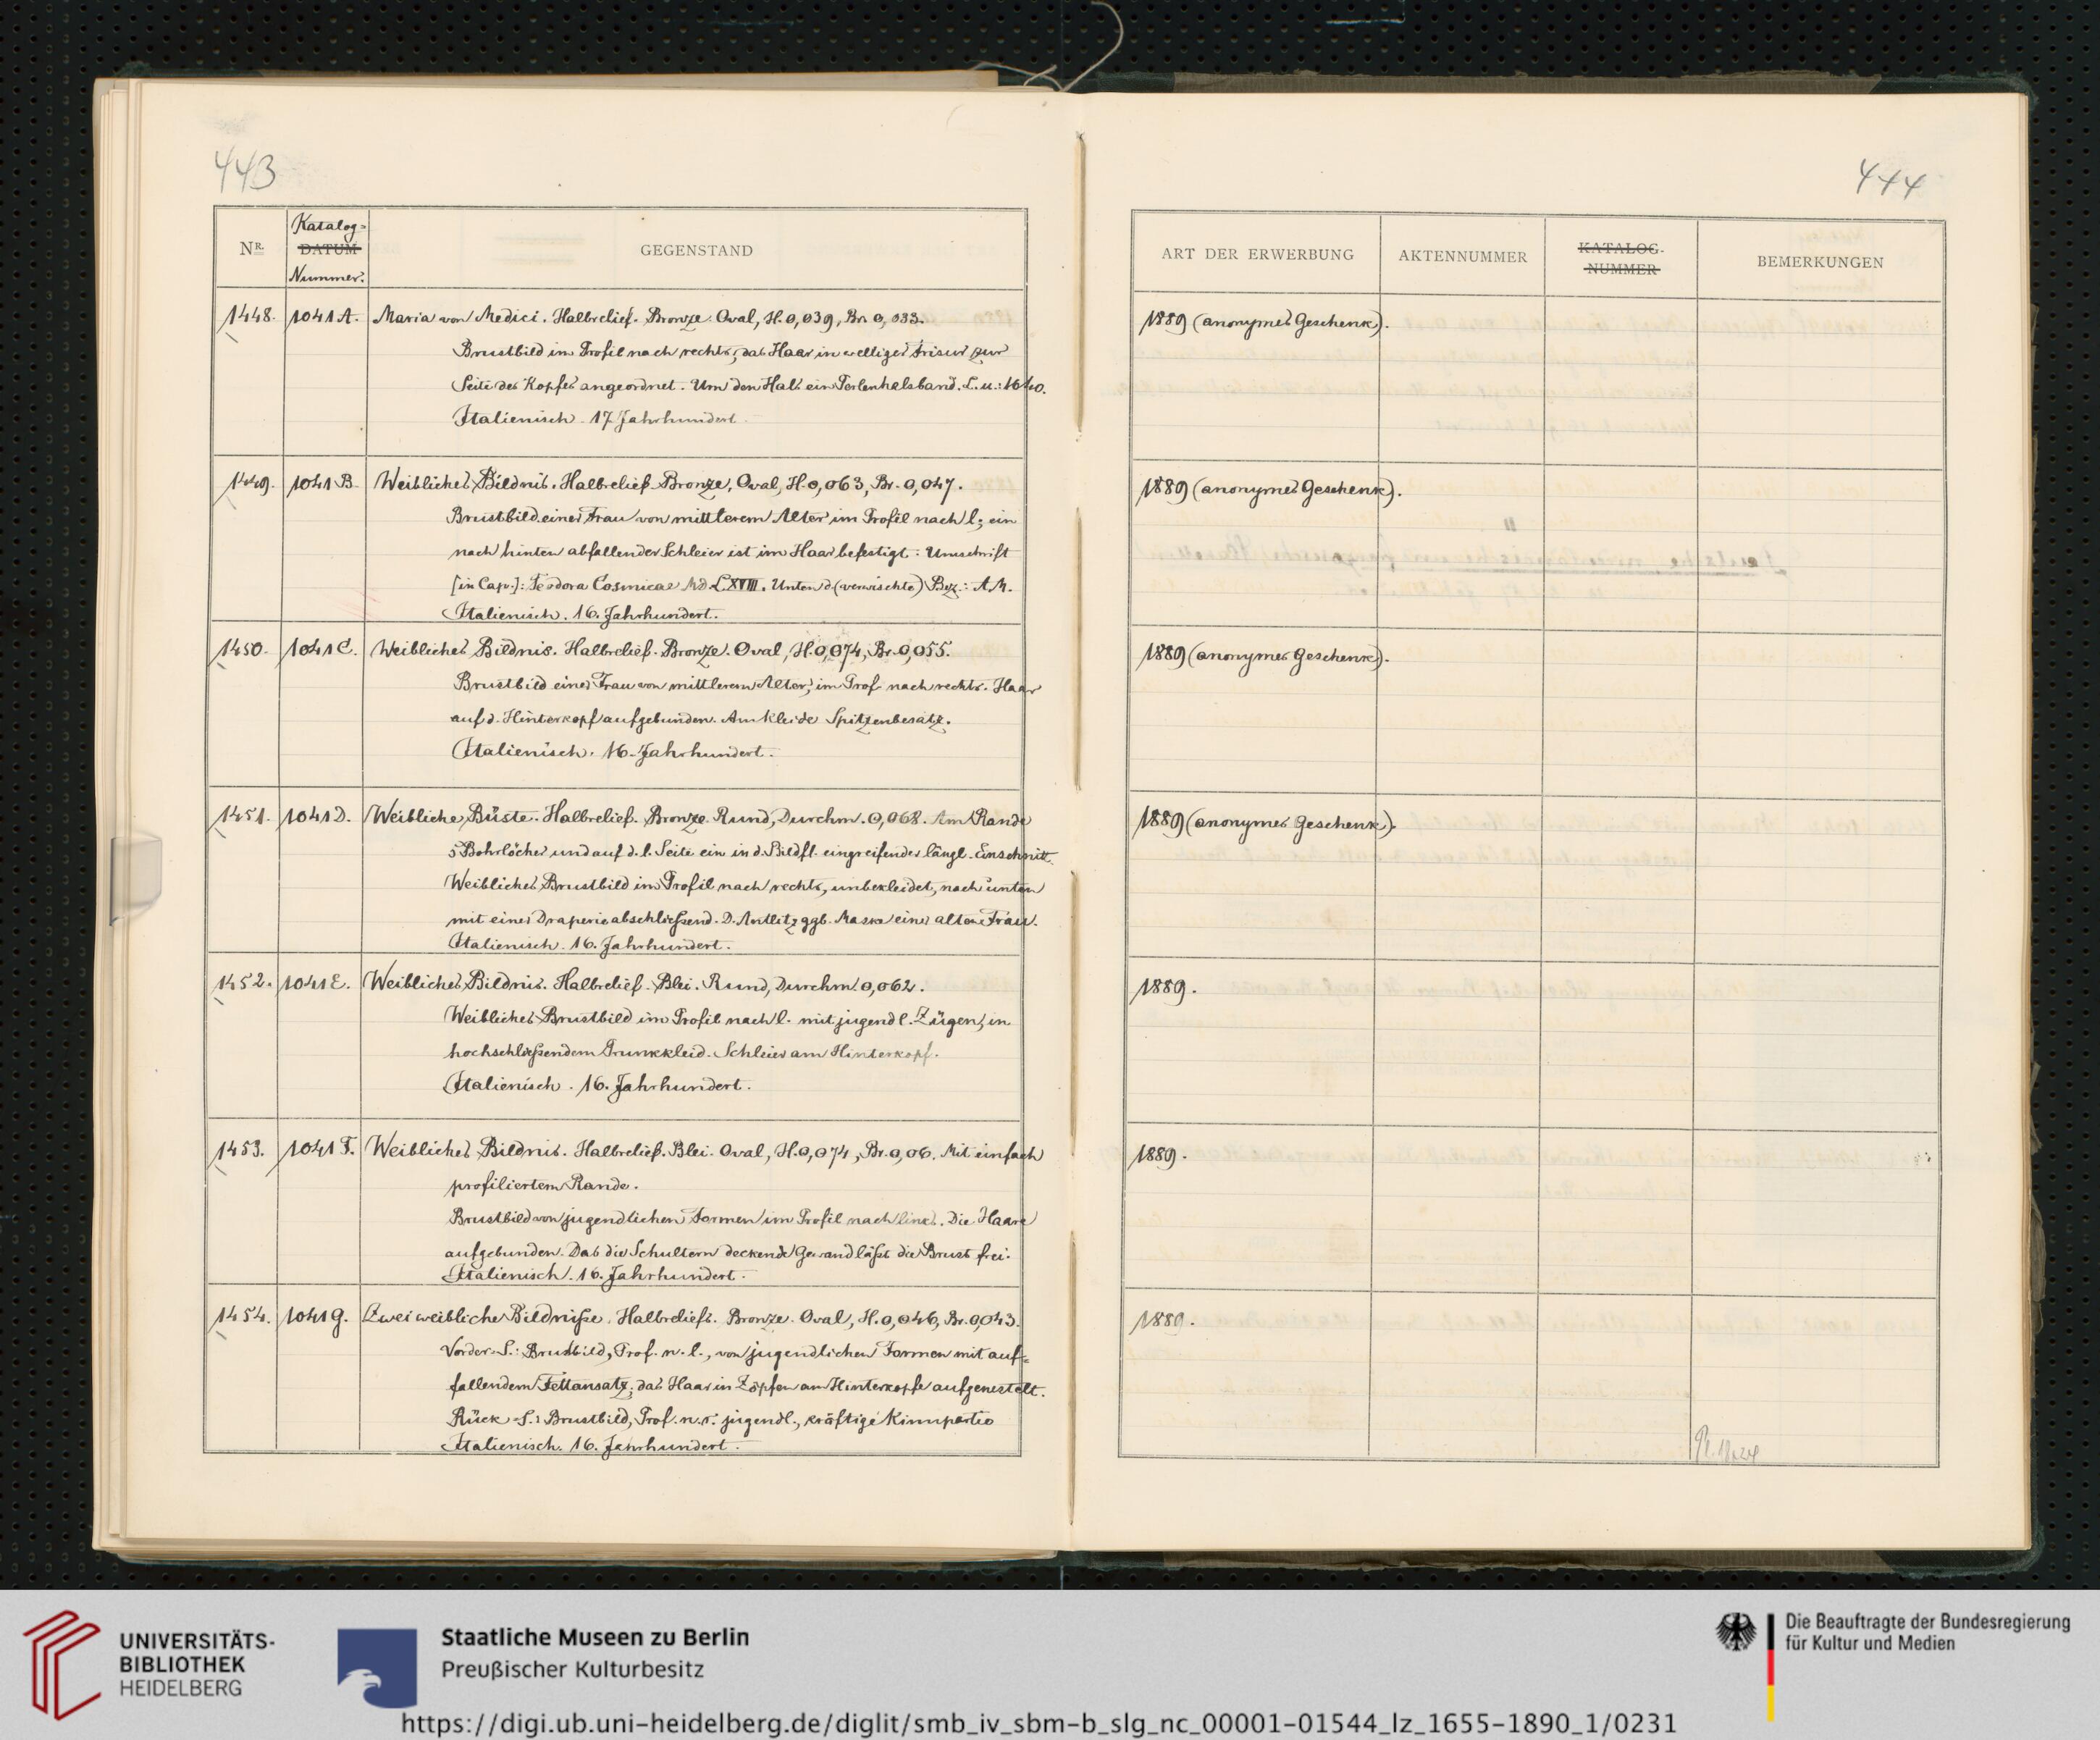 443
444
Katalog=
NR. DATUM GEGENSTAND
Nummer.
ART DER ERWERBUNG AKTENNUMMER KATALOG-NUMMER BEMERKUNGEN
1448. 1041 A. Maria von Medici. Halbrelief. Bronze. Oval, H. 0,039, Br. 0,033.
Brustbild im Profil nach rechts, das Haar in welliger Frisur zur
Seite des Kopfes angeordnet. Um den Hals ein Perlenhalsband. L. u.: 1640.
Italienisch. 17 Jahrhundert.
1889 (anonymes Geschenk).
1449. 1041 B. Weibliches Bildnis. Halbrelief. Bronze, Oval, H. 0,063, Br. 0,047.
Brustbild einer Frau von mittlerem Alter im Profil nach l; ein
nach hinten abfallender Schleier ist im Haar befestigt: Umschrift
[in Cap.]: Teodora Cosmicae MDLXVIII. Unten d (verwischte) Bez.: A.R.
Italienisch. 16. Jahrhundert.
1889 (anonymes Geschenk).
1450. 1041 C. Weibliches Bildnis. Halbrelief. Bronze. Oval, H. 0,074, Br. 0,055.
Brustbild einer Frau von mittlerem Alter, im Prof nach rechts. Haar
auf d. Hinterkopf aufgebunden. Am Kleide Spitzenbesatz.
Italienisch. 16. Jahrhundert.
1889 (anonymes Geschenk).
1451. 1041 D. Weibliche Büste. Halbrelief. Bronze. Rund, Durchm. 0,068. Am Rande
5 Bohrlöcher und auf d. l. Seite ein in d. Bildfl. eingreifender längl. Einschnitt.
Weibliches Brustbild im Profil nach rechts, unbekleidet, nach unten
mit einer Draperie abschließend. D. Antlitz ggb. Maske einer alten Frau.
Italienisch. 16. Jahrhundert.
1889 (anonymes Geschenk).
1452. 1041 E. Weibliches Bildnis. Halbrelief. Blei. Rund, Durchm. 0,062.
Weibliches Brustbild im Profil nach l. mit jugendl. Zügen, in
hochschließendem Prunkkleid. Schleier am Hinterkopf.
Italienisch. 16. Jahrhundert.
1889.
1453. 1041 F. Weibliches Bildnis. Halbrelief. Blei. Oval, H. 0,074, Br. 0,06. Mit einfach
profiliertem Rande.
Brustbild von jugendlichen Formen im Profil nach links. Die Haare
aufgebunden. Das die Schultern deckende Gewand läßt die Brust frei.
Italienisch. 16. Jahrhundert.
1889.
1454. 1041 G. Zwei weibliche Bildniße. Halbreliefs. Bronze. Oval, H. 0,046, Br. 0,043.
Vorder-S.: Brustbild, Prof. n. l., von jugendlichen Formen mit auf=
fallendem Fettansatz; das Haar in Zöpfen am Hinterkopfe aufgenestelt.
Rück-S.: Brustbild, Prof. n. r. jugendl., kräftige Kinnpartie
Italienisch. 16. Jahrhundert.
1889.
UNIVERSITÄTS-
BIBLIOTHEK
HEIDELBERG
Staatliche Museen zu Berlin
Preußischer Kulturbesitz
Die Beauftragte der Bundesregierung
für Kultur und Medien
https://digi.ub.uni-heidelberg.de/diglit/smb_iv_sbm-b_slg_nc_00001-01544_lz_1655-1890_1/0231